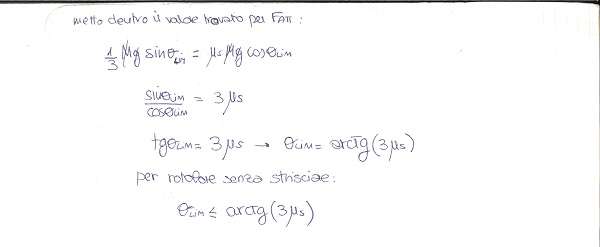 metto dentro il valore trovato per FATT:
1/3 Mg sinθLIM = μs Mg cosθLIM
sinθLIM/cosθLIM = 3μs
tgθLIM = 3μs → θLIM = arctg(3μs)
per rotolare senza strisciare:
θLIM ≤ arctg(3μs)